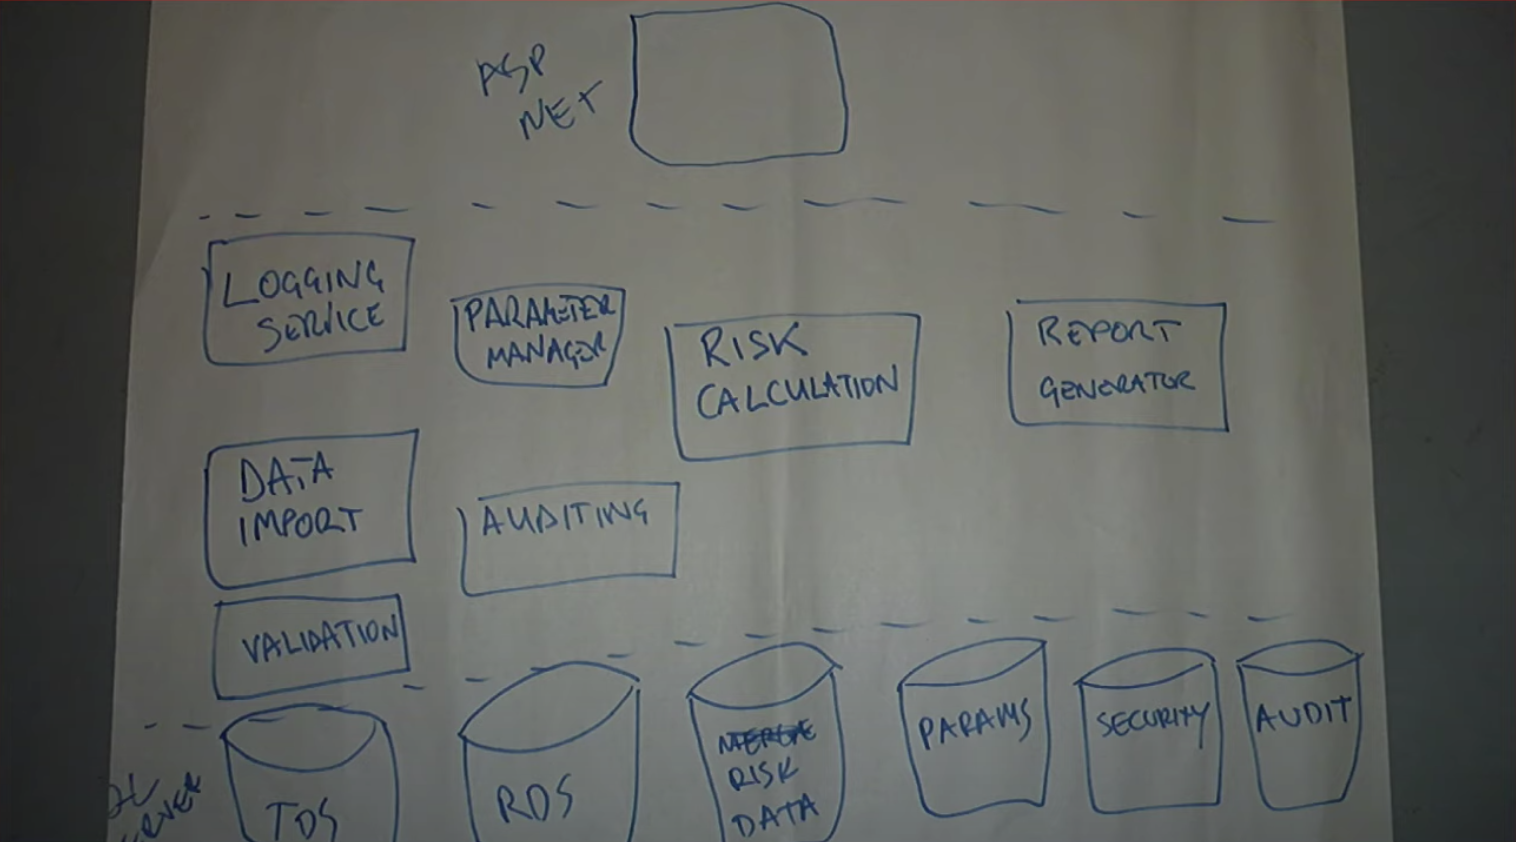 ASP
NET
LOGGING
SERVICE
PARAMETER
MANAGER
RISK
CALCULATION
REPORT
GENERATOR
DATA
IMPORT
AUDITING
VALIDATION
TDS
RDS
MERGE
RISK
DATA
PARAMS
SECURITY
AUDIT
SERVER